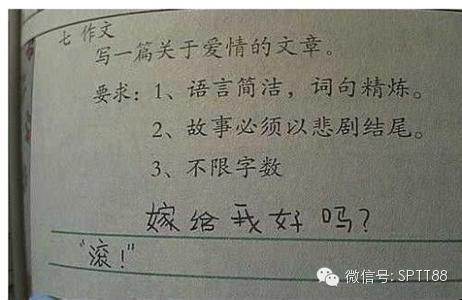 七 作文
写一篇关于爱情的文章。
要求：1、语言简洁，词句精炼。
2、故事必须以悲剧结尾。
3、不限字数
嫁给我好吗？
“滚！”
微信号: SPTT88